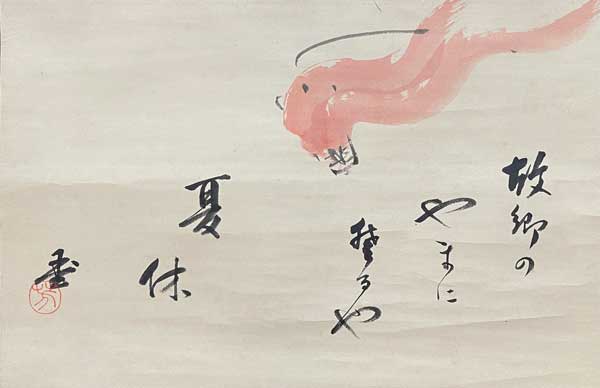 故郷の
やまに
攀るや
夏
休